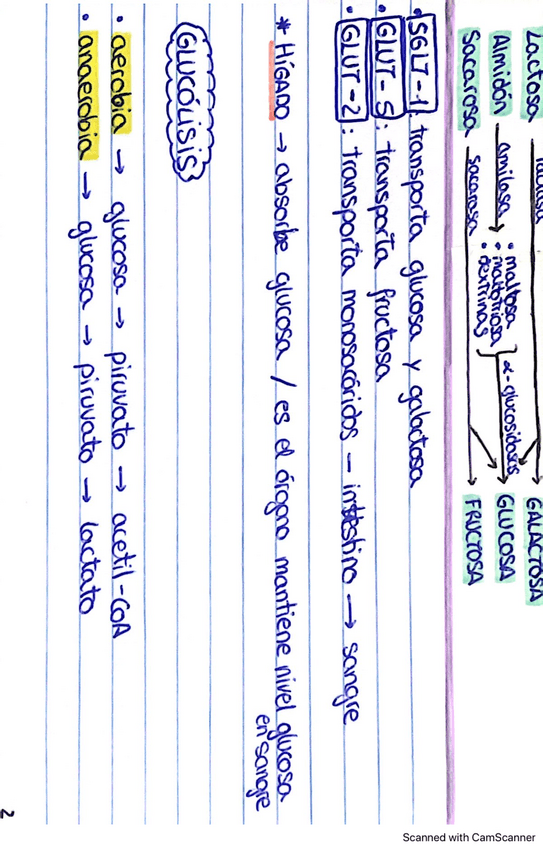 Lactosa → lactasa → GALACTOSA
Almidón → amilasa → • maltosa • maltotriosa • dextrinas } α-glucosidasas → GLUCOSA
Sacarosa → sacarosa → FRUCTOSA
• SGLT-1: transporta glucosa y galactosa
• GLUT-5: transporta fructosa
• GLUT-2: transporta monosacáridos – intestino → sangre
* HÍGADO → absorbe glucosa / es el órgano mantiene nivel glucosa
en sangre
GLUCÓLISIS
• aerobia → glucosa → piruvato → acetil-CoA
• anaerobia → glucosa → piruvato → lactato
2
Scanned with CamScanner